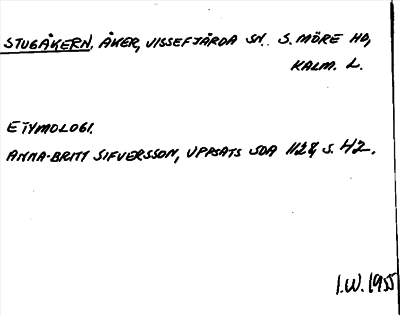 STUGÅKERN, ÅKER, VISSEFJÄRDA SN. S. MÖRE HD,
KALM. L.
ETYMOLOGI.
ANNA-BRITT SIFVERSSON, UPPSATS SOA 1128, S. 42.
I.W. 1955